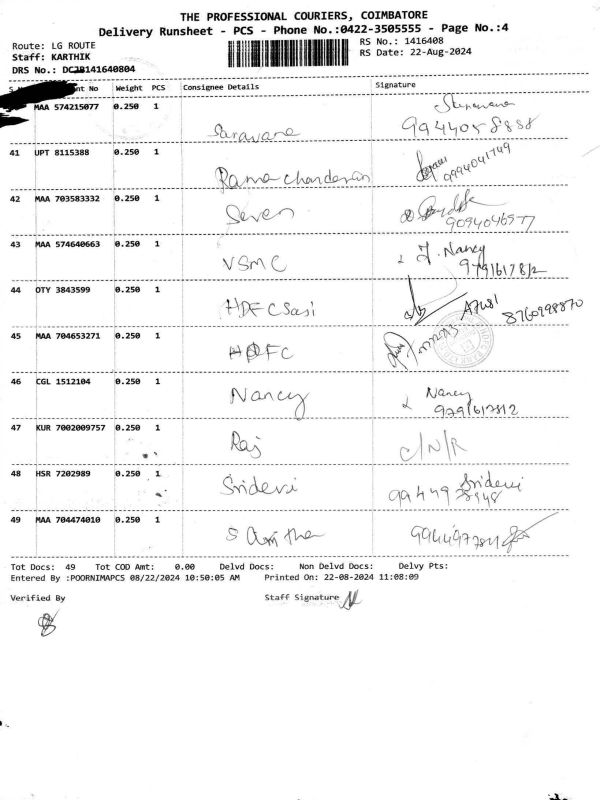 THE PROFESSIONAL COURIERS, COIMBATORE
Delivery Runsheet - PCS - Phone No.:0422-3505555 - Page No.:4
Route: LG ROUTE RS No.: 1416408
Staff: KARTHIK RS Date: 22-Aug-2024
DRS No.: DC2B141640804
No Weight PCS Consignee Details Signature
MAA 574215077 0.250 1 Saravana
9944058888
41 UPT 8115388 0.250 1 Rama chandaran 9994041749
42 MAA 703583332 0.250 1 Seven 9094046977
43 MAA 574640663 0.250 1 VSMC J. Nancy
9791617812
44 OTY 3843599 0.250 1 HDFC Sasi 8760998870
45 MAA 704653271 0.250 1 HDFC
46 CGL 1512104 0.250 1 Nancy Nancy
9791617812
47 KUR 7002009757 0.250 1 Raj C/N/R
48 HSR 7202989 0.250 1 Sridevi Sridevi
49 MAA 704474010 0.250 1
Tot Docs: 49 Tot COD Amt: 0.00 Delvd Docs: Non Delvd Docs: Delvy Pts:
Entered By :POORNIMAPCS 08/22/2024 10:50:05 AM Printed On: 22-08-2024 11:08:09
Verified By Staff Signature